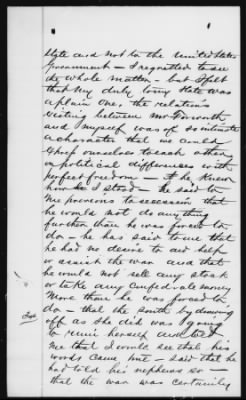 State and not to the United States
Government — I regretted to see
the whole matter — but I felt
that my duty to my State was
a plain one, the relations
existing between Mr Forsooth
and myself was of so intimate
a character that we could
each other
on political differences with
perfect freedom — He knew
how I stood — he said to
me previous to secession that
he would not do anything
further than he was forced to
do — he has said to me that
he had no desire to aid help
or assist the war and that
he would not sell any stock
or take any Confederate money
more than he was forced to
do — that the South by drawing
off as she did was going
to ruin herself and told
me that I would see that his
words came true — said that he
had told his nephews so —
that the war was certainly